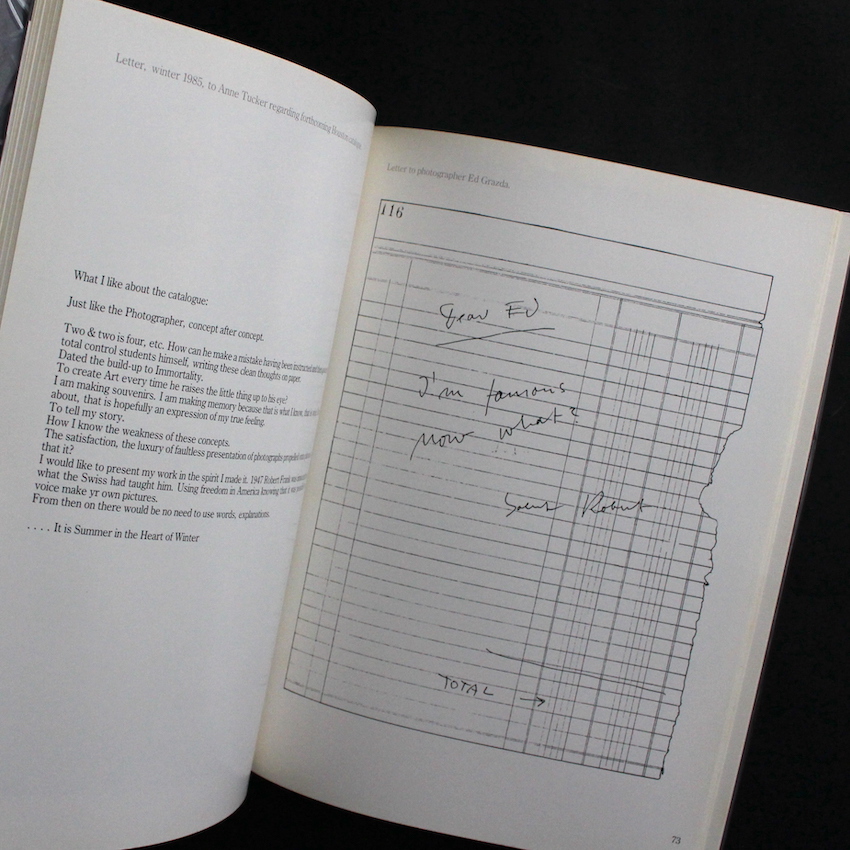 Letter, winter 1985, to Anne Tucker regarding forthcoming Houston catalogue.
What I like about the catalogue:
Just like the Photographer, concept after concept.
Two & two is four, etc. How can he make a mistake having been instructed
total control students himself, writing these clean thoughts on paper.
Dated the build-up to Immortality.
To create Art every time he raises the little thing up to his eye?
I am making souvenirs. I am making memory because that is what I know, that is
about, that is hopefully an expression of my true feeling.
To tell my story.
How I know the weakness of these concepts.
The satisfaction, the luxury of faultless presentation of photographs
that it?
I would like to present my work in the spirit I made it. 1947 Robert Frank
what the Swiss had taught him. Using freedom in America knowing that
voice make yr own pictures.
From then on there would be no need to use words, explanations.
. . . . It is Summer in the Heart of Winter
Letter to photographer Ed Grazda.
116
Dear Ed
I'm famous
now what?
Robert
TOTAL →
73